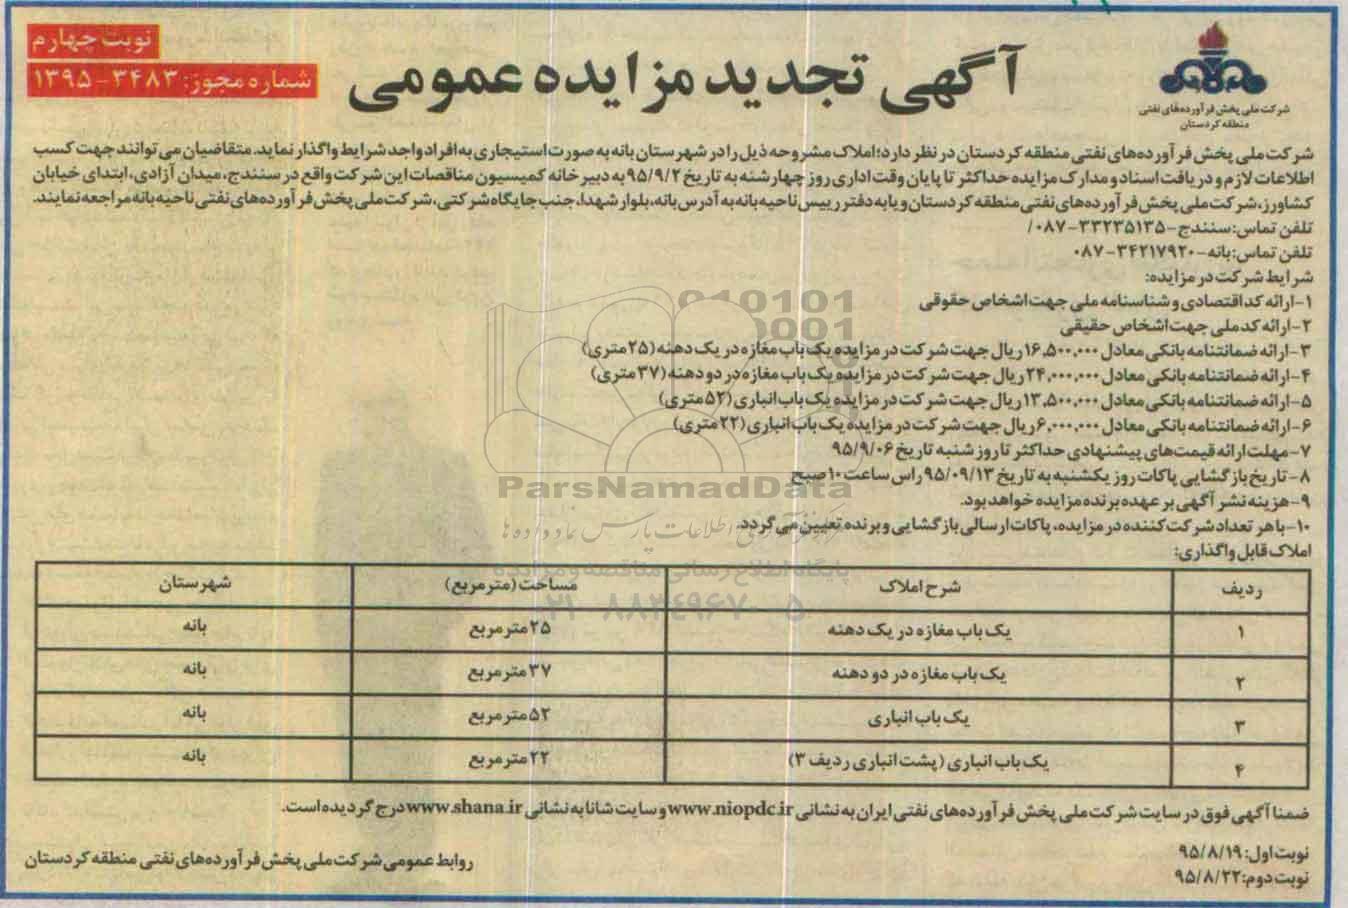 نوبت چهارم
شماره مجوز: ۳۴۸۳-۱۳۹۵
آگهی تجدید مزایده عمومی
شرکت ملی پخش فرآورده‌های نفتی
منطقه کردستان
شرکت ملی پخش فرآورده‌های نفتی منطقه کردستان در نظر دارد؛ املاک مشروحه ذیل را در شهرستان بانه به صورت استیجاری به افراد واجد شرایط واگذار نماید. متقاضیان می توانند جهت کسب
اطلاعات لازم و دریافت اسناد و مدارک مزایده حداکثر تا پایان وقت اداری روز چهارشنبه به تاریخ ۹۵/۹/۲ به دبیرخانه کمیسیون مناقصات این شرکت واقع در سنندج، میدان آزادی، ابتدای خیابان
کشاورز، شرکت ملی پخش فرآورده‌های نفتی منطقه کردستان و یا به دفتر رییس ناحیه بانه به آدرس بانه، بلوار شهدا، جنب جایگاه شرکتی، شرکت ملی پخش فرآورده‌های نفتی ناحیه بانه مراجعه نمایند.
تلفن تماس: سنندج - ۳۳۲۳۵۱۳۵-۰۸۷/
تلفن تماس: بانه - ۳۴۲۱۷۹۲۰-۰۸۷
شرایط شرکت در مزایده:
۱- ارائه کد اقتصادی و شناسنامه ملی جهت اشخاص حقوقی
۲- ارائه کد ملی جهت اشخاص حقیقی
۳- ارائه ضمانتنامه بانکی معادل ۱۶,۵۰۰,۰۰۰ ریال جهت شرکت در مزایده یک باب مغازه در یک دهنه (۲۵ متری)
۴- ارائه ضمانتنامه بانکی معادل ۲۴,۰۰۰,۰۰۰ ریال جهت شرکت در مزایده یک باب مغازه در دو دهنه (۳۷ متری)
۵- ارائه ضمانتنامه بانکی معادل ۱۳,۵۰۰,۰۰۰ ریال جهت شرکت در مزایده یک باب انباری (۵۲ متری)
۶- ارائه ضمانتنامه بانکی معادل ۶,۰۰۰,۰۰۰ ریال جهت شرکت در مزایده یک باب انباری (۲۲ متری)
۷- مهلت ارائه قیمت‌های پیشنهادی حداکثر تا روز شنبه تاریخ ۹۵/۹/۰۶
۸- تاریخ بازگشایی پاکات روز یکشنبه به تاریخ ۹۵/۰۹/۱۳ راس ساعت ۱۰ صبح
۹- هزینه نشر آگهی بر عهده برنده مزایده خواهد بود.
۱۰- با هر تعداد شرکت کننده در مزایده، پاکات ارسالی بازگشایی و برنده تعیین می گردد.
ParsNamadData
پایگاه اطلاع رسانی مناقصه و مزایده
۰۲۱-۸۸۳۴۹۶۷۰-۵
املاک قابل واگذاری:
ردیف شرح املاک مساحت (مترمربع) شهرستان
۱ یک باب مغازه در یک دهنه ۲۵ مترمربع بانه
۲ یک باب مغازه در دو دهنه ۳۷ مترمربع بانه
۳ یک باب انباری ۵۲ مترمربع بانه
۴ یک باب انباری (پشت انباری ردیف ۳) ۲۲ مترمربع بانه
ضمنا آگهی فوق در سایت شرکت ملی پخش فرآورده‌های نفتی ایران به نشانی www.niopdc.ir و سایت شانا به نشانی www.shana.ir درج گردیده است.
نوبت اول: ۹۵/۸/۱۹
نوبت دوم: ۹۵/۸/۲۲
روابط عمومی شرکت ملی پخش فرآورده‌های نفتی منطقه کردستان